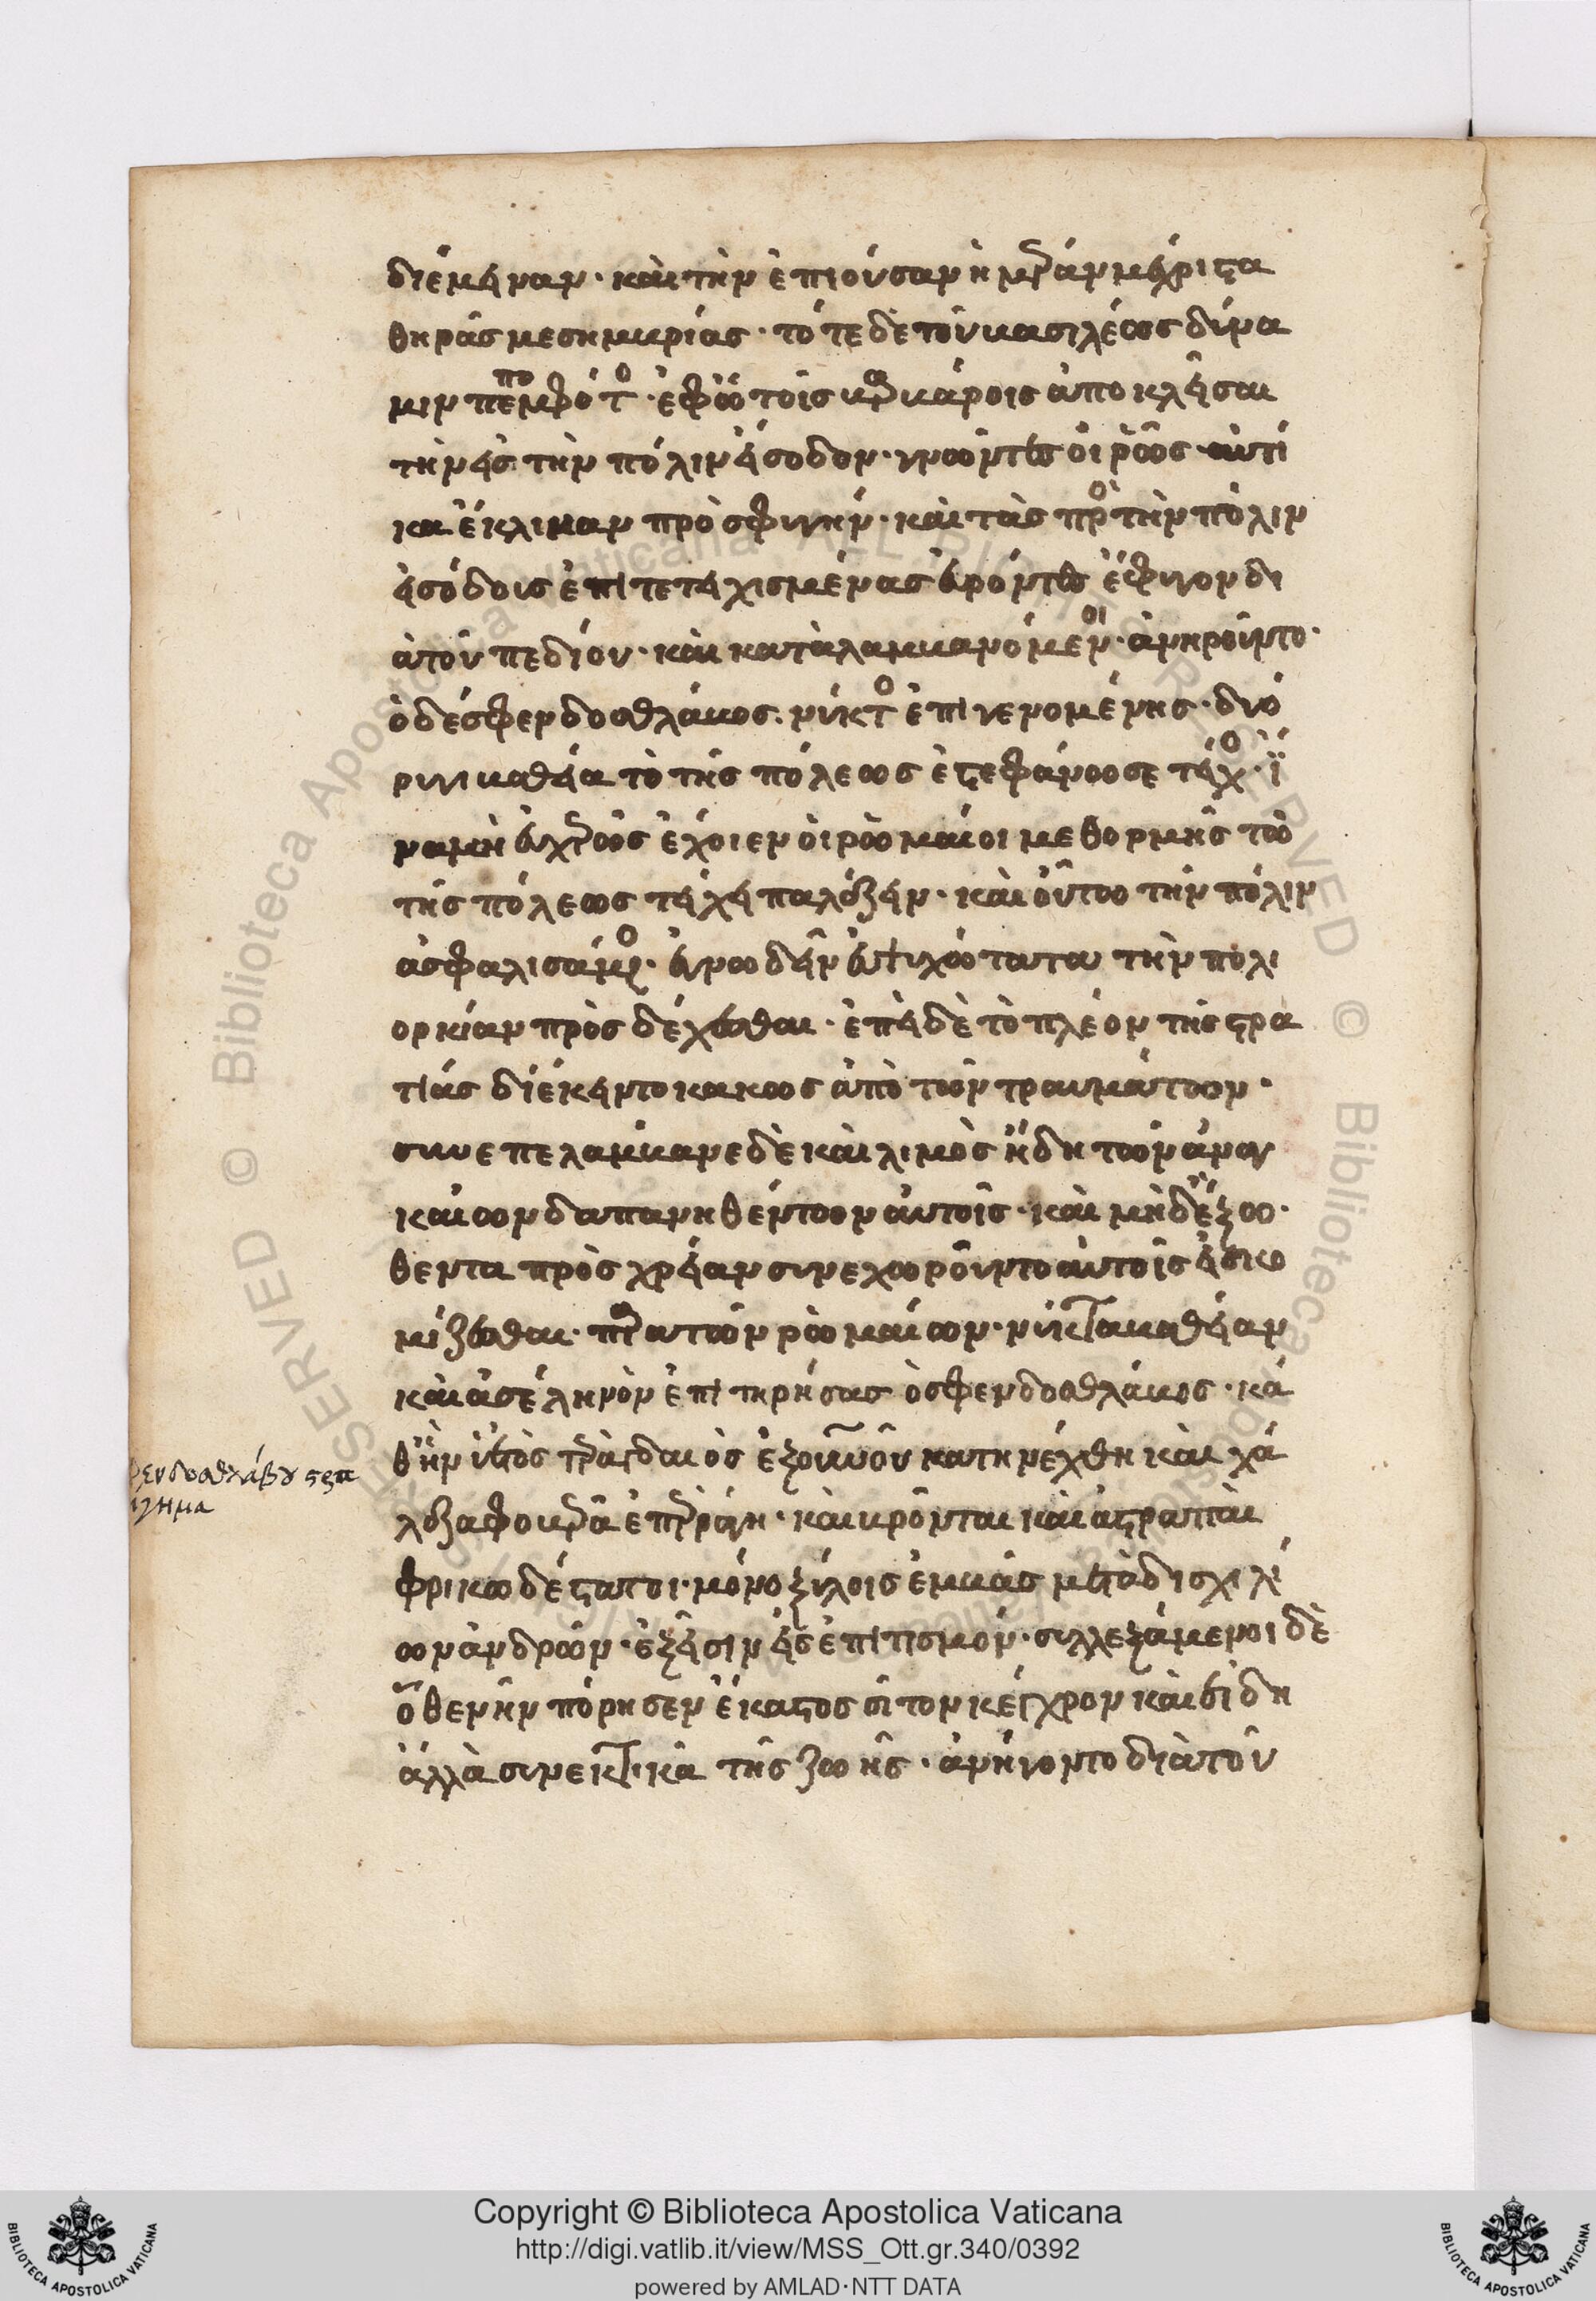 διέμειναν· καὶ τὴν ἐπιοῦσαν ἡμέραν μέχρι στα
θηρᾶς μεσημβρίας· τότε δὲ τοῦ βασιλέως δύνα
μιν πέμποντος· ἐφῶ τοῖς βαρβάροις ἀποκλεῖσαι
τὴν εἰς τὴν πόλιν εἴσοδον· γνῶντες οἱ ῥῶς· αὐτί
κα ἔκλιναν πρὸς φυγήν· καὶ τὰς πρὸς τὴν πόλιν
εἰσόδους ἐπιτετειχισμένας εὑρόντες ἔφυγον δι
ὰ τοῦ πεδίου· καὶ καταλαμβανόμενοι· ἀνηροῦντο·
ὁ δὲ σφενδοσθλάβος. νυκτὸς ἐπιγενομένης· δυό
τὸ τῆς πόλεως ἐστεφάνωσε τεῖχος· ἵ
ναμὴ εὐχερῶς ἔχοιεν οἱ ῥωμαῖοι μεθ ὁρμῆς τῶ
τῆς πόλεως τείχει πελάζειν· καὶ οὕτω τὴν πόλιν
ἀσφαλισάμενος· ἔγνω δεῖν εὐτυχώτατα τὴν πολι
ορκίαν προσδέχεσθαι· ἐπεὶ δὲ τὸ πλέον τῆς στρα
τιᾶς διέκειντο κακῶς ἀπὸ τῶν τραυμάτων·
συνεπελαμβανε δὲ καὶ λιμὸς ἤδη τῶν ἀναγ
καίων δαπανηθέντων αὐτοῖς· καὶ μὴ δὲ ἔξω·
θεν τὰ πρὸς χρείαν συνεχωροῦντο αὐτοῖς εἰσκο
μίζεσθαι· παρα τῶν ῥωμαίων· νύκτα βαθεῖαν
καὶ ἀσέληνον ἐπιτηρήσας ὁ σφενδοσθλάβος· κά
θ ἣν ὑετὸς ραγδαῖος ἐξ οὐρανοῦ κατηνέχθη καὶ χά
λαζα φοβερὰ ἐπερράγη· καὶ βρονταὶ καὶ ἀστραπαὶ
φρικωδέσταται· μονοξύλοις ἐμβὰς μετὰ δισχιλί
ων ἀνδρῶν· ἐξεῖσιν εἰς ἐπισιτισμόν· συλλεξάμενοι δὲ
ὅθεν ἦν πόρησεν ἕκαστος σῖτον κέγχρον καὶ εἴδη
ἀλλὰ συνεκτικὰ τῆς ζωῆς· ἀνήγοντο διὰ τοῦ
φενδοσθλάβου στρα
τήγημα
Copyright © Biblioteca Apostolica Vaticana
http://digi.vatlib.it/view/MSS_Ott.gr.340/0392
powered by AMLAD·NTT DATA